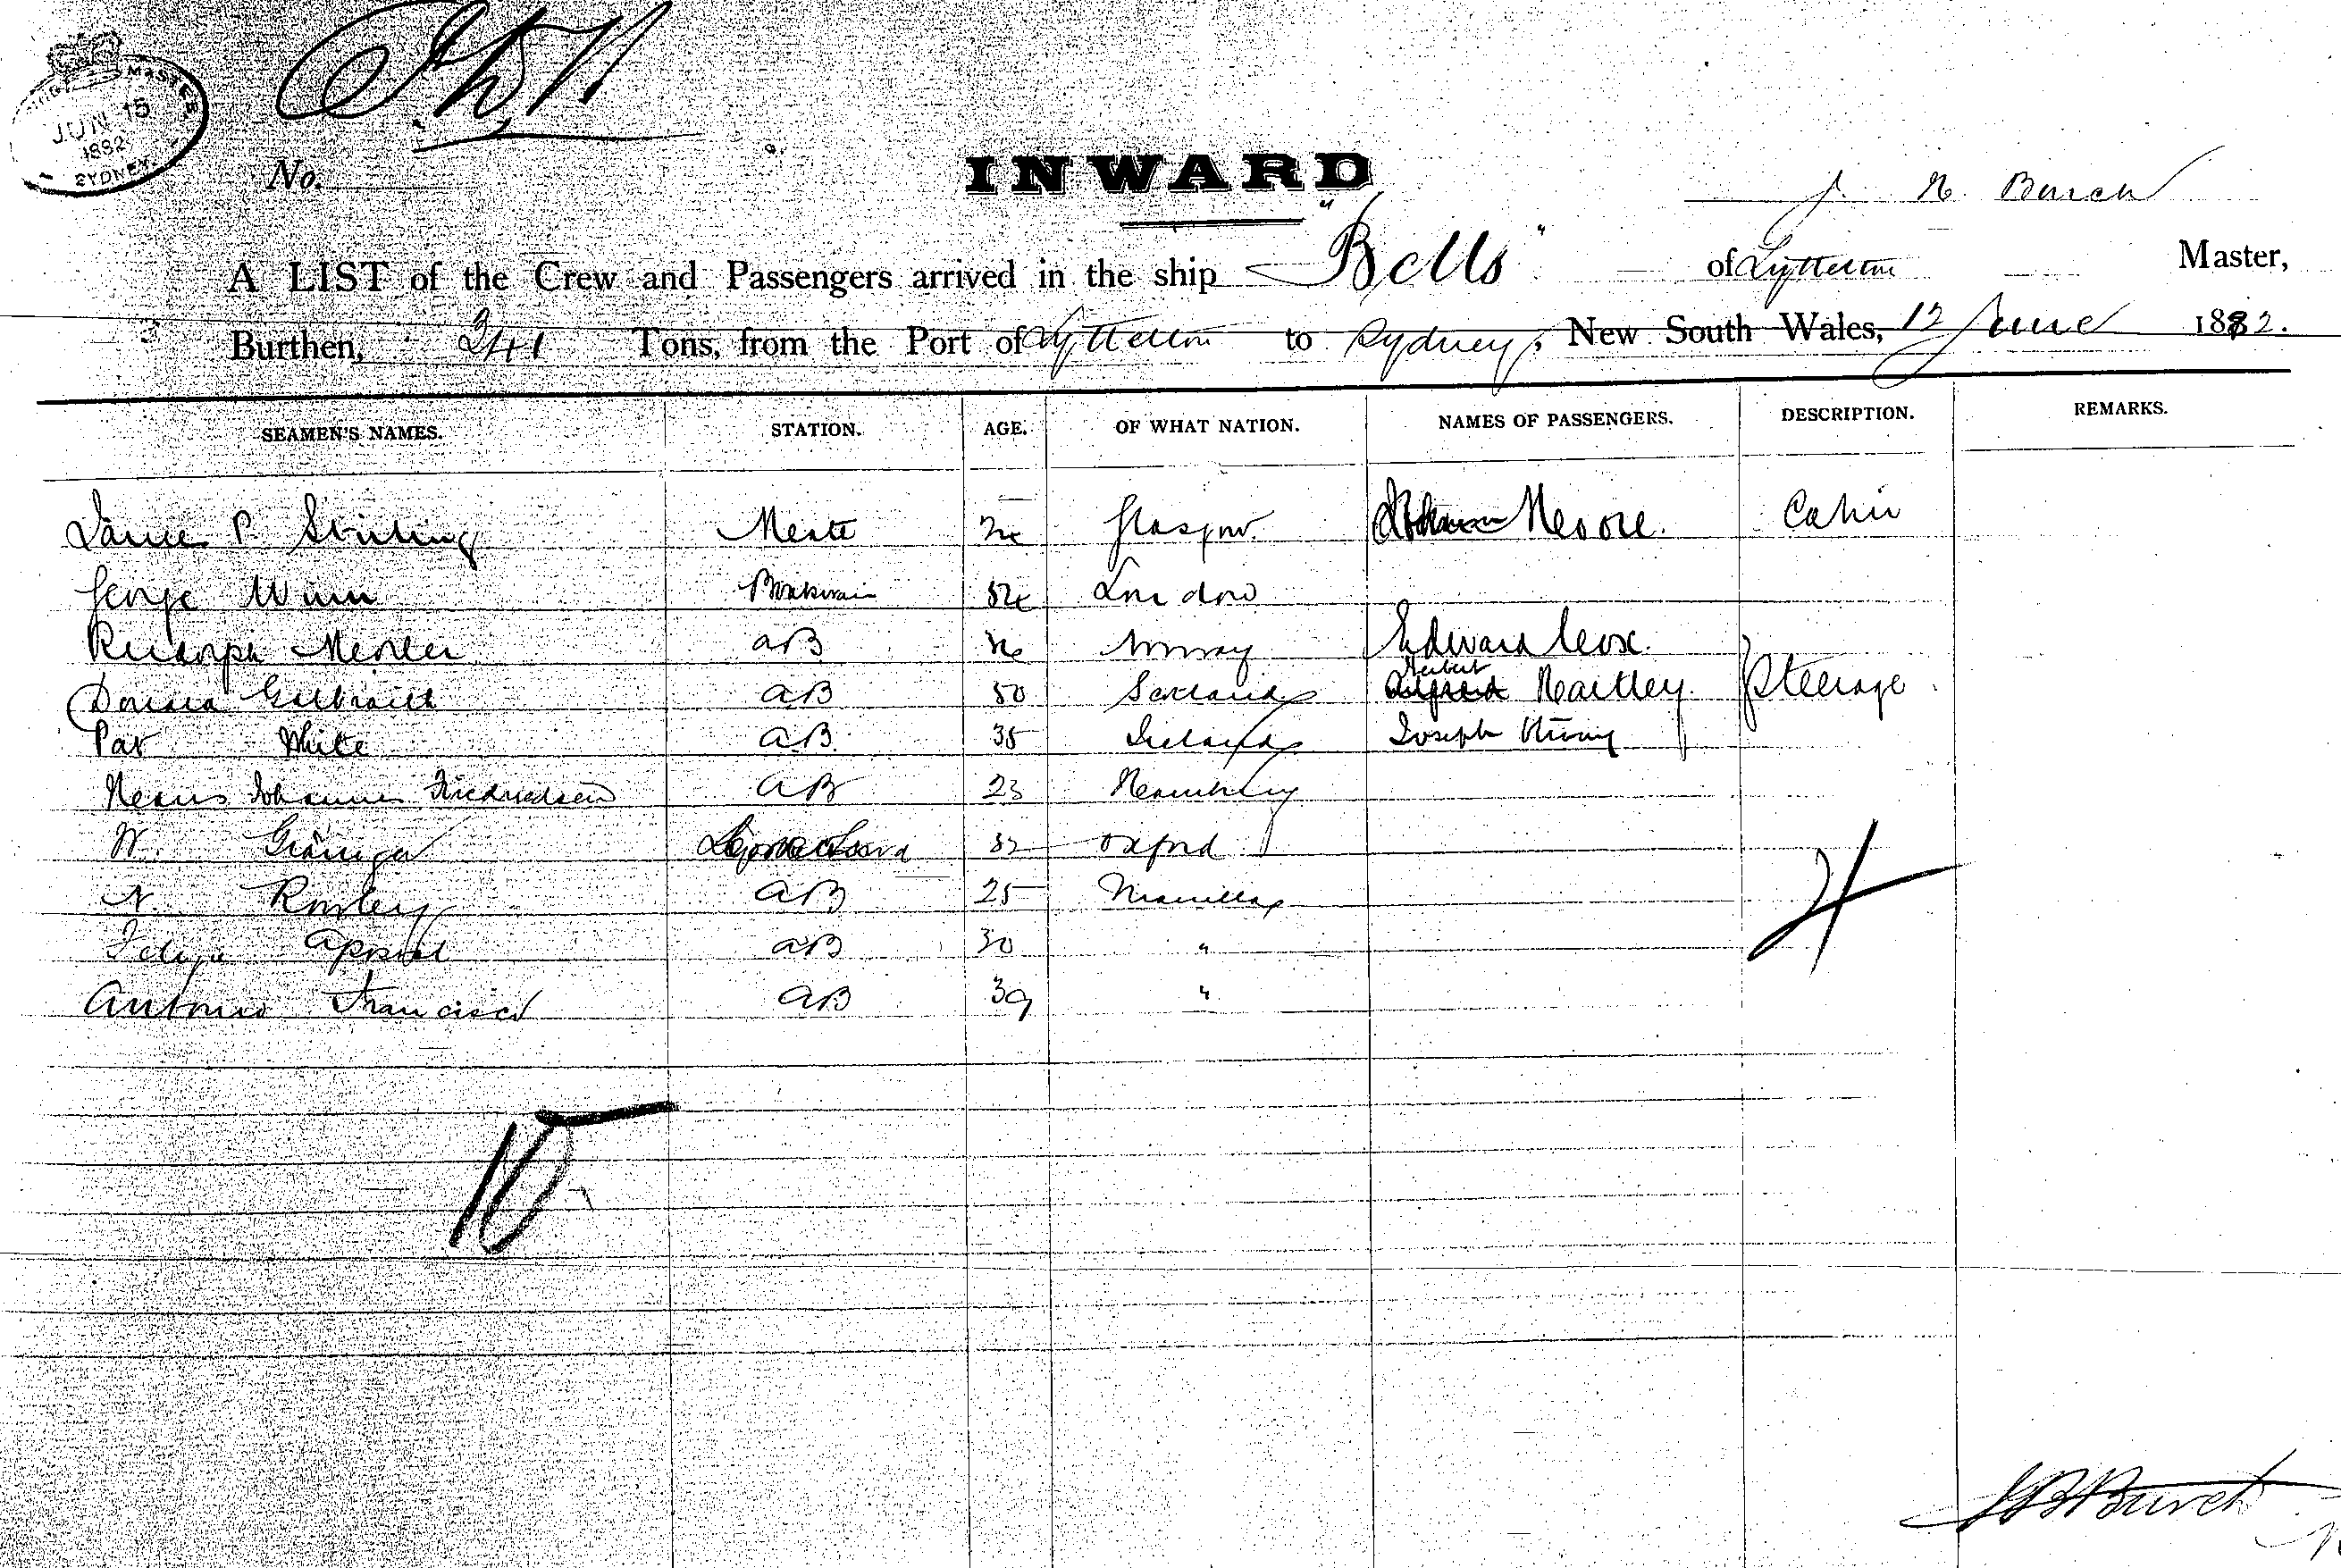 JUN 15
1882
SYDNEY.
No.
INWARD
J. H. Burch
A LIST of the Crew and Passengers arrived in the ship "Bells" of Lyttelton Master,
Burthen, Tons, from the Port of Lyttelton to Sydney, New South Wales, 12 June 1882.
SEAMEN'S NAMES. STATION. AGE. OF WHAT NATION. NAMES OF PASSENGERS. DESCRIPTION. REMARKS.
James P. Stirling Mate Glasgow. Moore. Cabin
George Winn Boatswain London
Rudolph AB Norway Edward Cox.
Donald Galbraith AB 50 Scotland Herbert Alfred Hartley. Steerage
Pat White AB 35 Ireland Joseph
Hans Johannes Friedrichsen AB 23 Hamburg
W. Grainger Oxford
N. Rowley AB 25 Manilla
Felipe AB 30 "
Antonio Francisco AB 39 "
4
10
Burch